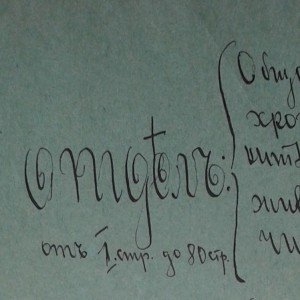 отдѣлъ:
отъ 1. стр. до 80 стр.
Общ
хро
жив
чи